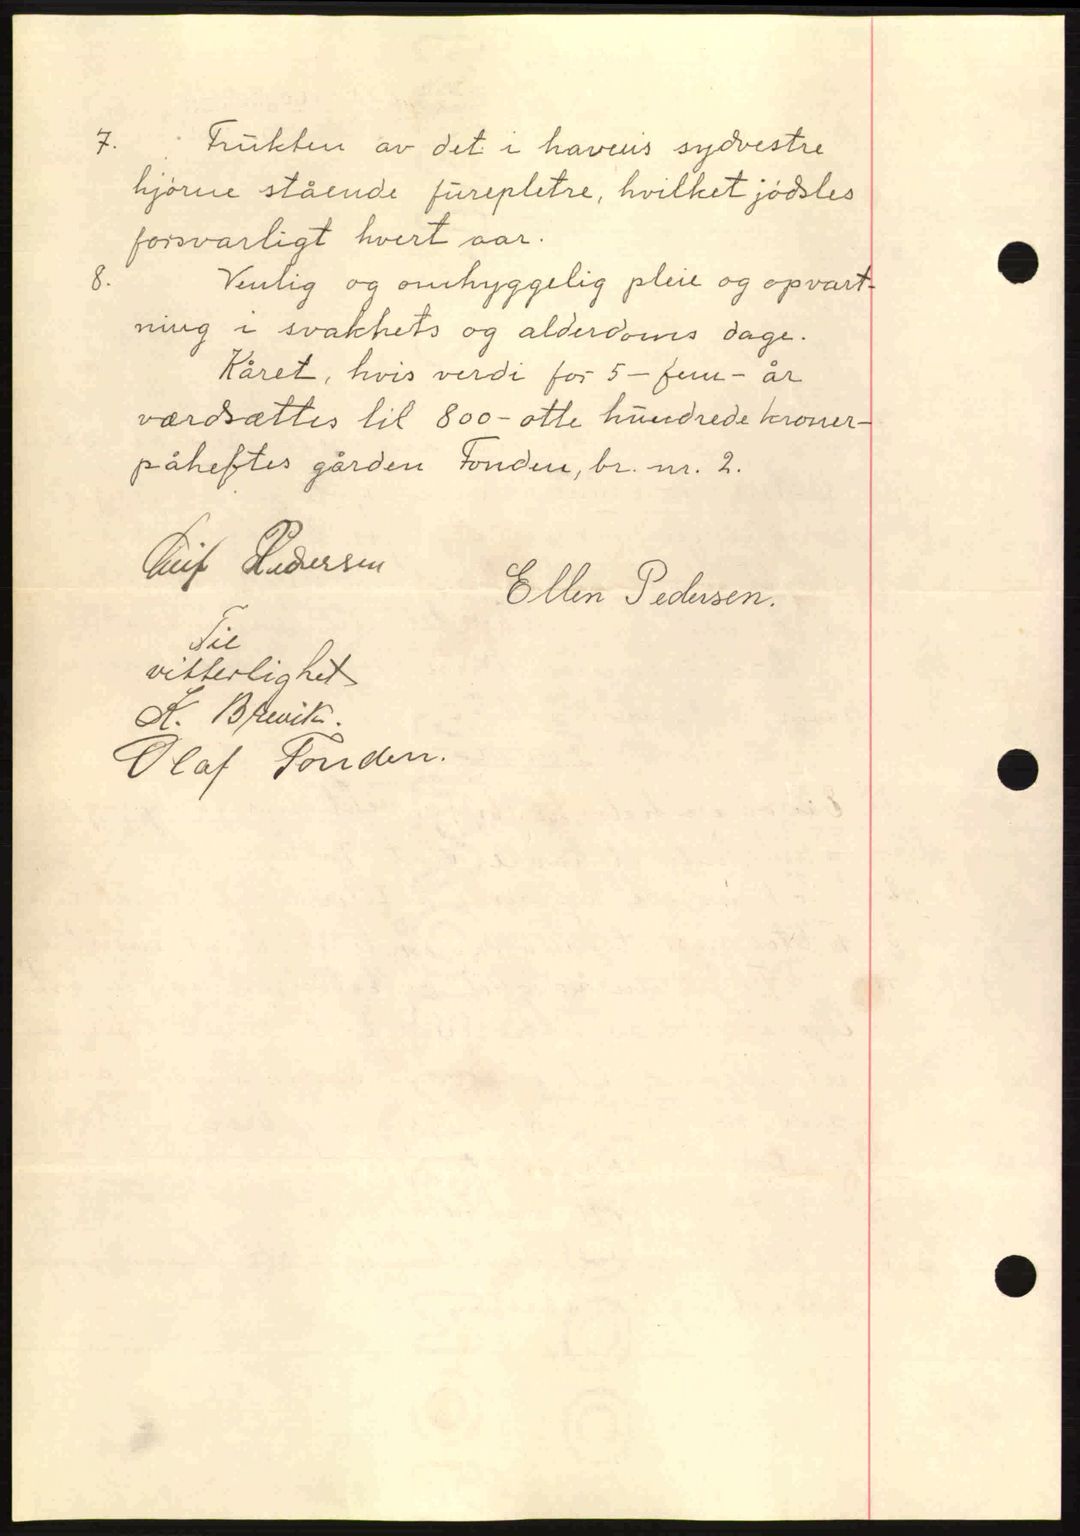 7. Frukten av det i havens sydvestre
hjørne stående furepletre, hvilket jødsles
forsvarligt hvert aar.
8. Venlig og omhyggelig pleie og opvart-
ning i svakhets og alderdoms dage.
Kåret, hvis verdi for 5 – fem – år
værdsættes til 800 – otte hundrede kroner –
påheftes gården Fonden, br. nr. 2.
Leif Pedersen
Ellen Pedersen.
Til
vitterlighet
K. Brevik.
Olaf Fonden.